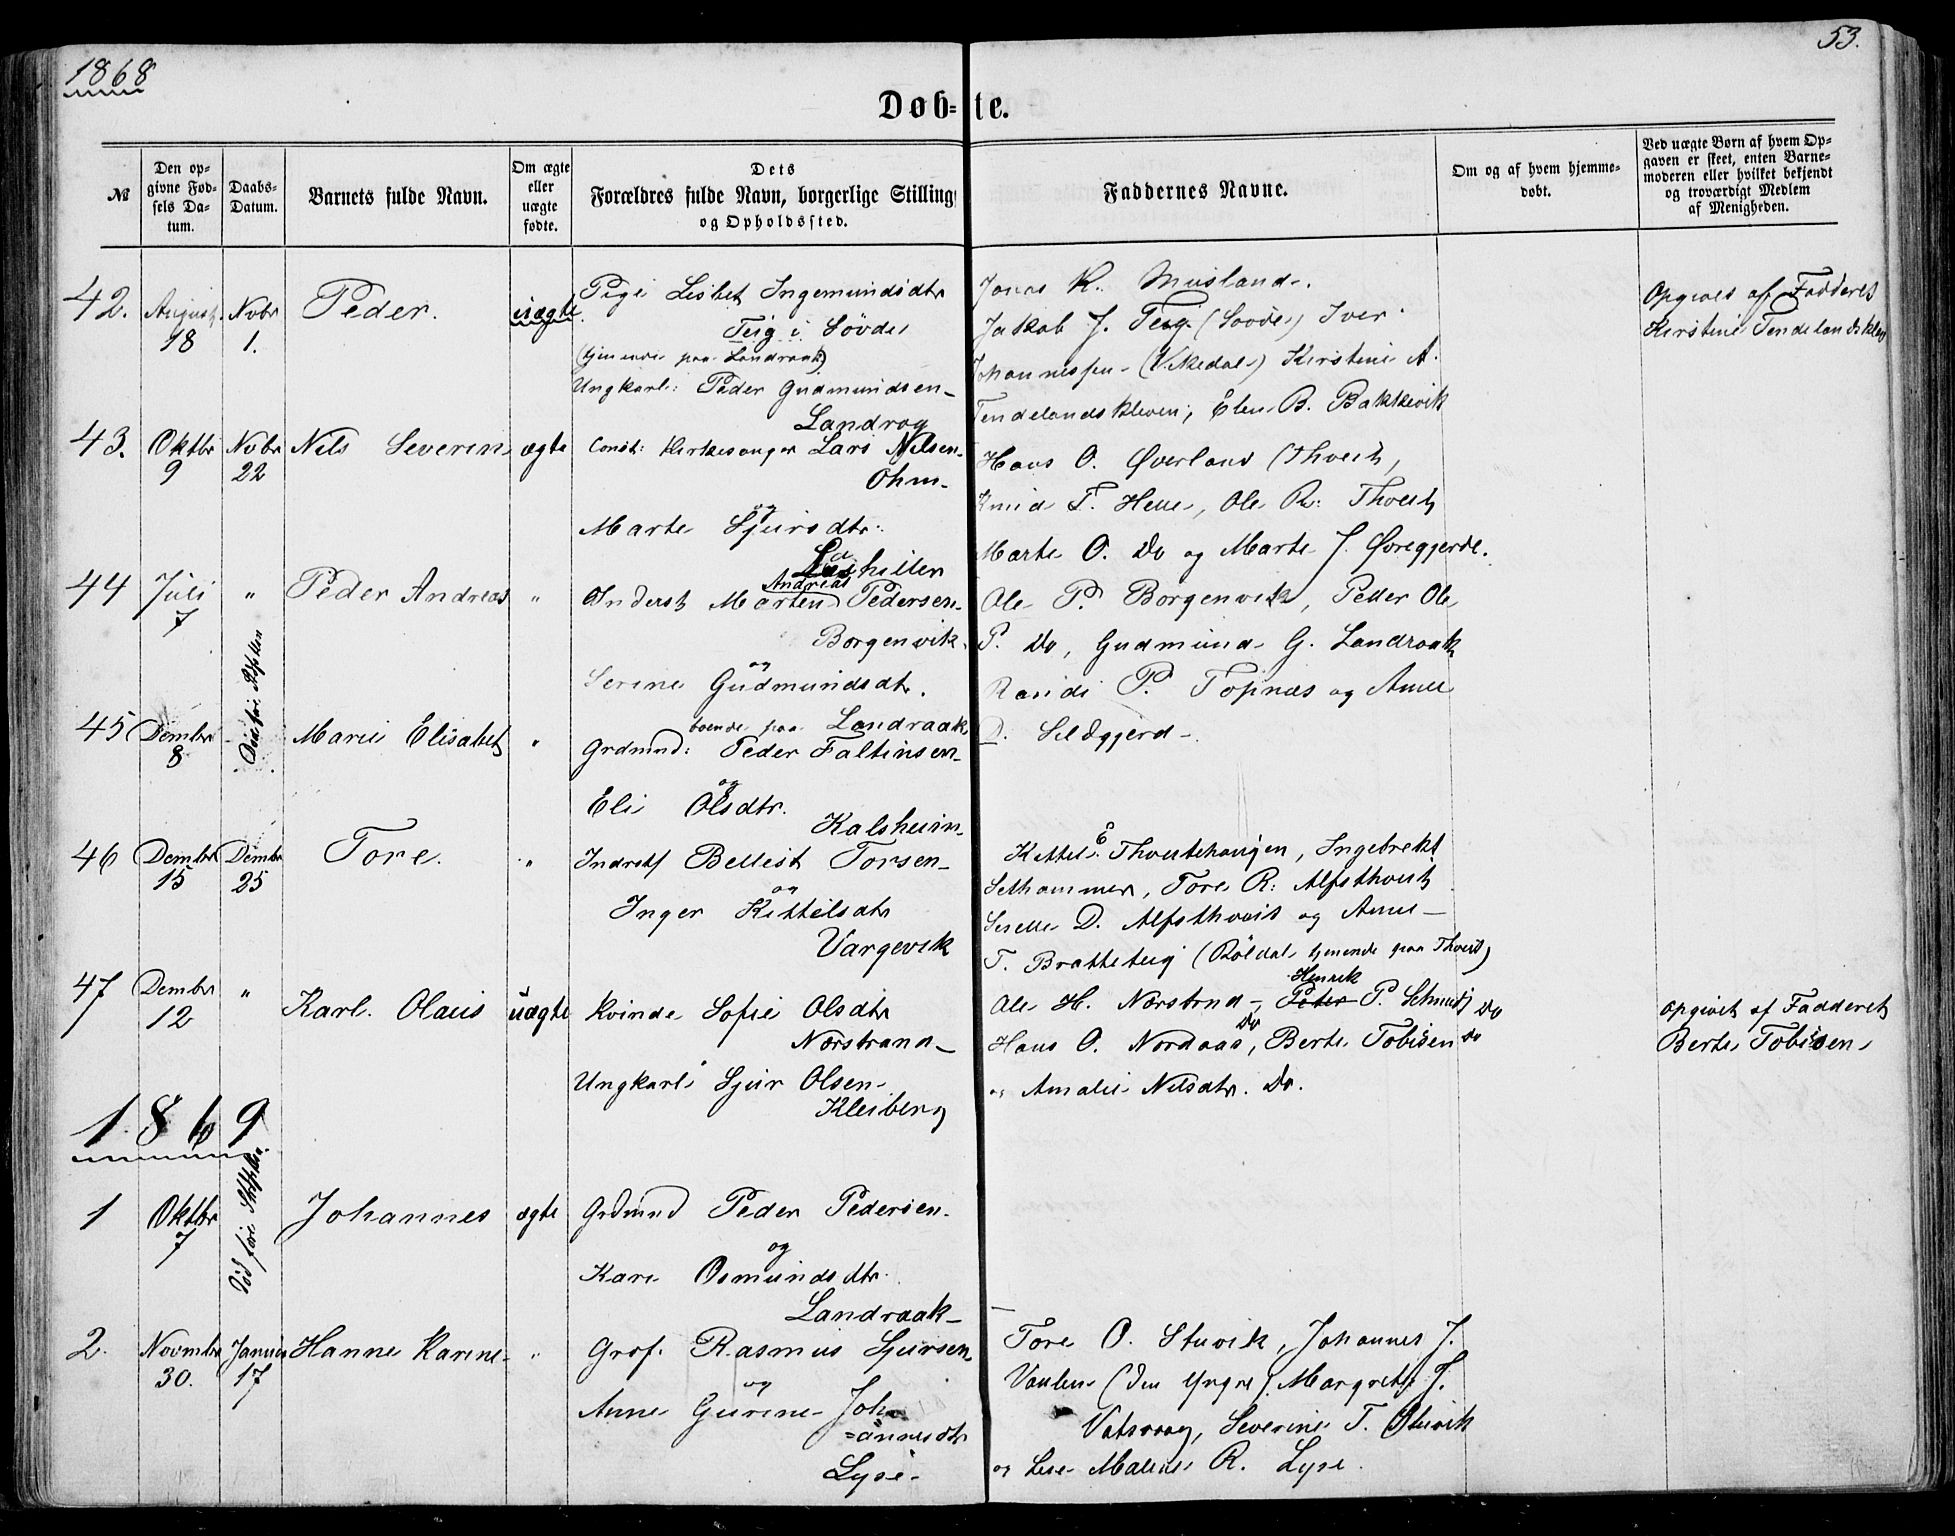 1868
53.
Døb=te.
№
Den op-
givne Fød-
sels Da-
tum.
Daabs-
Datum.
Barnets fulde Navn.
Om ægte
eller
uægte
fødte.
Dets
Forældres fulde Navn, borgerlige Stilling
og Opholdssted.
Faddernes Navne.
Om og af hvem hjemme-
døbt.
Ved uægte Børn af hvem Op-
gaven er skeet, enten Barne-
moderen eller hvilket bekjendt
og troværdigt Medlem
af Menigheden.
42. August 18 Nvbr 1. Peder. uægte
Pige Lisbet Ingemundsdtr
Teig i Søvde
(tjenende paa Landraak)
Ungkarl: Peder Gudmundsen
Landraag
Jonas K. Musland
Jakob J. Teig (Søvde) Iver
Johannessen (Vikedal) Kirstine A.
Tendelandskleven, Elen B. Bakkevik
Opgivet af Fadderet
Kirstine Tendelandsklev
43. Oktbr 9 Nvbr 22 Nils Severin ægte
Const: Kirkesanger Lars Nilsen
Ohm
og
Marte Sjursdtr:
Hans O. Øverland (Thveit,
Knud T. Helle, Ole R: Thveit
Marte O. Do og Marte J. Øreggjerde.
44 Juli 7 " Peder Andreas "
Inderst Morten Pedersen
Andreas
Borgenvik.
og
Serine Gudmundsdtr.
boende paa Landraak
Ole P. Borgenvik, Peder Ole
P. Do, Gudmund G. Landraak
Randi P. Topnæs og Anne
D. Sildggjerd
45 Dembr 8 Død før Daaben Marie Elisabet "
Grdmnd: Peder Faltinsen
og
Eli Olsdtr.
Kalsheim
46 Dembr 15 Dembr 25 Tore. "
Indrest Bellest Torsen
og
Inger Kittilsdtr
Vargevik
Kittil E. Thveitehaugen, Ingebrekt
Selhammer, Tore R: Alfsthveit
Siselle D. Alfsthveit og Anne
T. Bratteteig (Røldal tjenende paa Thveit)
47 Dembr 12 " Karl Olaus uægte
Kvinde Sofie Olsdtr
Norstrand
Ungkarl Sjur Olsen
Kleiberg
Henrik
Ole H. Norstrand, Peter P. Schmidt Do
Hans O. Nordaas Do, Berte Tobisen Do
og Amalie Nilsdtr. Do.
opgivet af Fadderet
Berte Tobisen
1869
1 Oktbr 7 Johannes ægte
Grdmnd Peder Pedersen
og
Kari Osmundsdtr.
Landraak
2. Novmbr 30. Januar 17 Hanne Karine "
Grdf. Rasmus Sjursen
og
Anne Gurine Joh
=annesdtr
Lyse
Tore O. Stuvik, Johannes J.
Vaulen (den yngre) Margrete J.
Vatsvaag, Severine T. Stuvik
og Lise Malene R. Lyse.